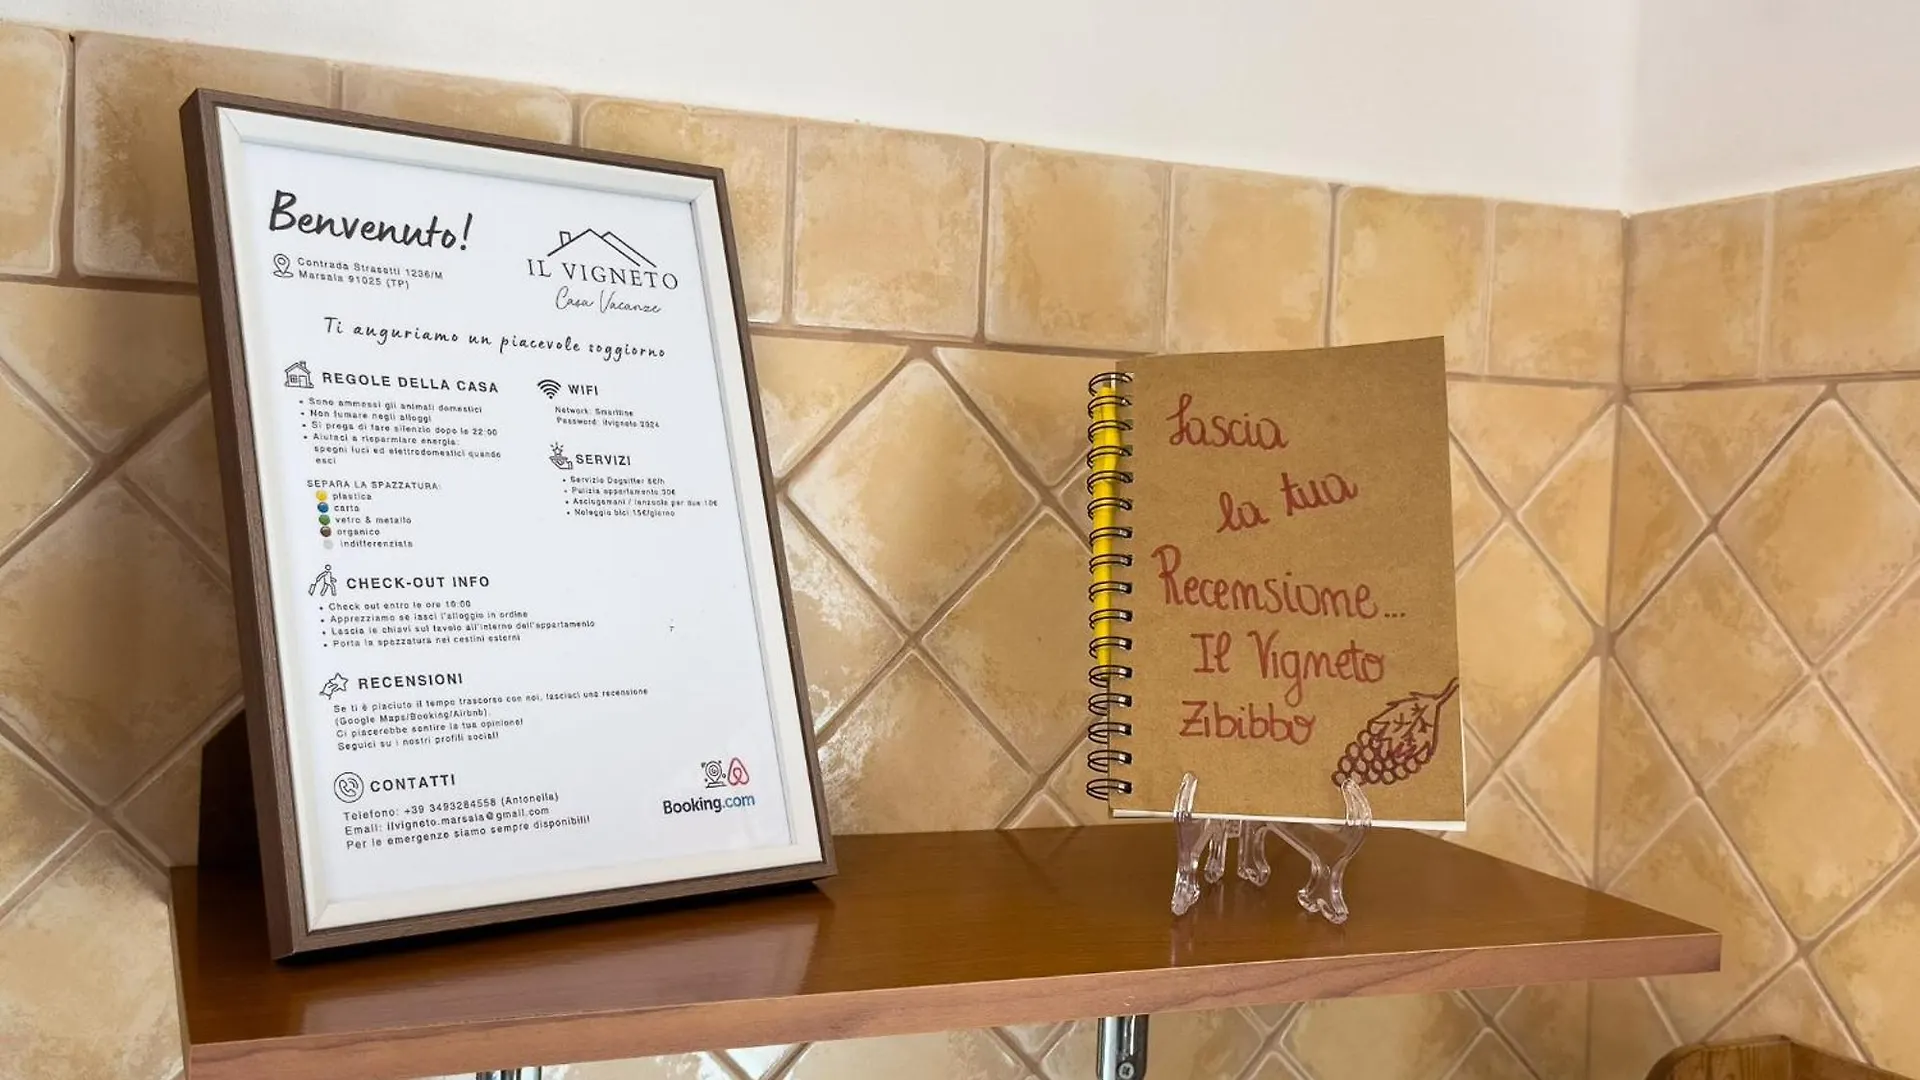 Benvenuto!
Contrada Strasatti 1236/M
Marsala 91025 (TP)
IL VIGNETO
Casa Vacanze
Ti auguriamo un piacevole soggiorno
REGOLE DELLA CASA
• Sono ammessi gli animali domestici
• Non fumare negli alloggi
• Si prega di fare silenzio dopo le 22:00
• Aiutaci a risparmiare energia:
spegni luci ed elettrodomestici quando
esci
SEPARA LA SPAZZATURA:
plastica
carta
vetro & metallo
organico
indifferenziata
WIFI
Network: Smartline
Password: ilvigneto 2024
SERVIZI
• Servizio Dogsitter 8€/h
• Pulizia appartamento 30€
• Asciugamani / lenzuola per due 10€
• Noleggio bici 15€/giorno
CHECK-OUT INFO
• Check out entro le ore 10:00
• Apprezziamo se lasci l'alloggio in ordine
• Lascia le chiavi sul tavolo all'interno dell'appartamento
• Porta la spazzatura nei cestini esterni
RECENSIONI
Se ti è piaciuto il tempo trascorso con noi, lasciaci una recensione
(Google Maps/Booking/Airbnb).
Ci piacerebbe sentire la tua opinione!
Seguici su i nostri profili social!
CONTATTI
Telefono: +39 3493284558 (Antonella)
Email: ilvigneto.marsala@gmail.com
Per le emergenze siamo sempre disponibili!
Booking.com
Lascia
la tua
Recensione...
Il Vigneto
Zibibbo